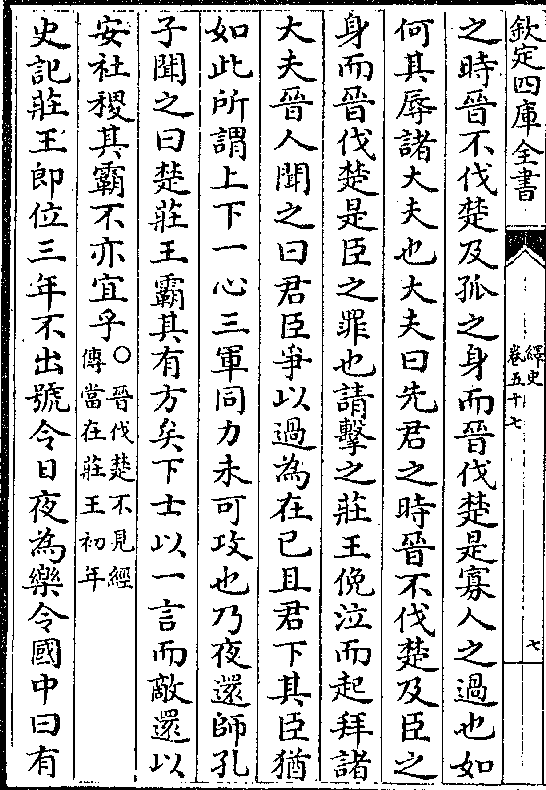 欽定四庫全書
繹史
卷五十七
七
之時晉不伐楚及孤之身而晉伐楚是寡人之過也如
何其辱諸大夫也大夫曰先君之時晉不伐楚及臣之
身而晉伐楚是臣之罪也請擊之莊王俛泣而起拜諸
大夫晉人聞之曰君臣爭以過為在已且君下其臣猶
如此所謂上下一心三軍同力未可攻也乃夜還師孔
子聞之曰楚莊王霸其有方矣下士以一言而敵還以
安社稷其霸不亦宜乎〇晉伐楚不見經
傳當在莊王初年
史記莊王即位三年不出號令日夜為樂令國中曰有